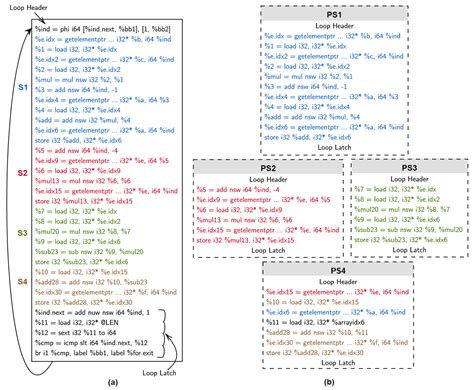 Loop Header
%ind = phi i64 [%ind.next, %bb1], [1, %bb2]
%e.idx = getelementptr ... i32* %b, i64 %ind
%1 = load i32, i32* %e.idx
%e.idx2 = getelementptr ... i32* %c, i64 %ind
%2 = load i32, i32* %e.idx2
%mul = mul nsw i32 %2, %1
%3 = add nsw i64 %ind, -1
%e.idx4 = getelementptr ... i32* %a, i64 %3
%4 = load i32, i32* %e.idx4
%add = add nsw i32 %mul, %4
%e.idx6 = getelementptr ... i32* %a, i64 %ind
store i32 %add, i32* %e.idx6
%5 = add nsw i64 %ind, -4
%e.idx9 = getelementptr ... i32* %e, i64 %5
%6 = load i32, i32* %e.idx9
%mul13 = mul nsw i32 %6, %6
%e.idx15 = getelementptr ... i32* %e, i64 %ind
store i32 %mul13, i32* %e.idx15
%7 = load i32, i32* %e.idx
%8 = load i32, i32* %e.idx2
%mul20 = mul nsw i32 %8, %7
%9 = load i32, i32* %e.idx6
%sub23 = sub nsw i32 %9, %mul20
store i32 %sub23, i32* %e.idx6
%10 = load i32, i32* %e.idx15
%add28 = add nsw i32 %10, %sub23
%e.idx30 = getelementptr ... i32* %f, i64 %ind
store i32 %add28, i32* %e.idx30
%ind.next = add nuw nsw i64 %ind, 1
%11 = load i32, i32* @LEN
%12 = sext i32 %11 to i64
%cmp = icmp slt i64 %ind.next, %12
br i1 %cmp, label %bb1, label %for.exit
S1
S2
S3
S4
Loop Latch
(a)
PS1
Loop Header
%e.idx = getelementptr ... i32* %b, i64 %ind
%1 = load i32, i32* %e.idx
%e.idx2 = getelementptr ... i32* %c, i64 %ind
%2 = load i32, i32* %e.idx2
%mul = mul nsw i32 %2, %1
%3 = add nsw i64 %ind, -1
%e.idx4 = getelementptr ... i32* %a, i64 %3
%4 = load i32, i32* %e.idx4
%add = add nsw i32 %mul, %4
%e.idx6 = getelementptr ... i32* %a, i64 %ind
store i32 %add, i32* %e.idx6
Loop Latch
PS2
Loop Header
%5 = add nsw i64 %ind, -4
%e.idx9 = getelementptr ... i32* %e, i64 %5
%6 = load i32, i32* %e.idx9
%mul13 = mul nsw i32 %6, %6
%e.idx15 = getelementptr ... i32* %e, i64 %ind
store i32 %mul13, i32* %e.idx15
Loop Latch
PS3
Loop Header
%7 = load i32, i32* %e.idx
%8 = load i32, i32* %e.idx2
%mul20 = mul nsw i32 %8, %7
%9 = load i32, i32* %e.idx6
%sub23 = sub nsw i32 %9, %mul20
store i32 %sub23, i32* %e.idx6
Loop Latch
PS4
Loop Header
%e.idx15 = getelementptr ... i32* %e, i64 %ind
%10 = load i32, i32* %e.idx15
%e.idx6 = getelementptr ... i32* %a, i64 %ind
%11 = load i32, i32* %arrayidx6
%add28 = add nsw i32 %10, %11
%e.idx30 = getelementptr ... i32* %f, i64 %ind
store i32 %add28, i32* %e.idx30
Loop Latch
(b)